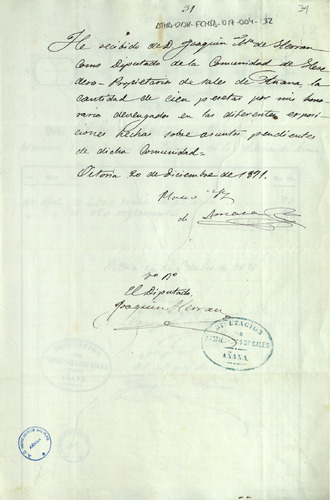 31
ATHA-DAH-FCMSA-017-004-32
34
He recibido de D. Joaquin Mª de Herran
como Diputado de la Comunidad de Here
dero-Propietarios de sales de Añana, la
cantidad de cien pesetas por mis hono
rarios devengados en las diferentes exposi
ciones hechas sobre asuntos pendientes
de dicha Comunidad=
Vitoria 20 de Diciembre de 1891.
de
Vº Bº
El Diputado,
Joaquin Herran
DIPUTACION
DE
SALES
AÑANA
AÑANA